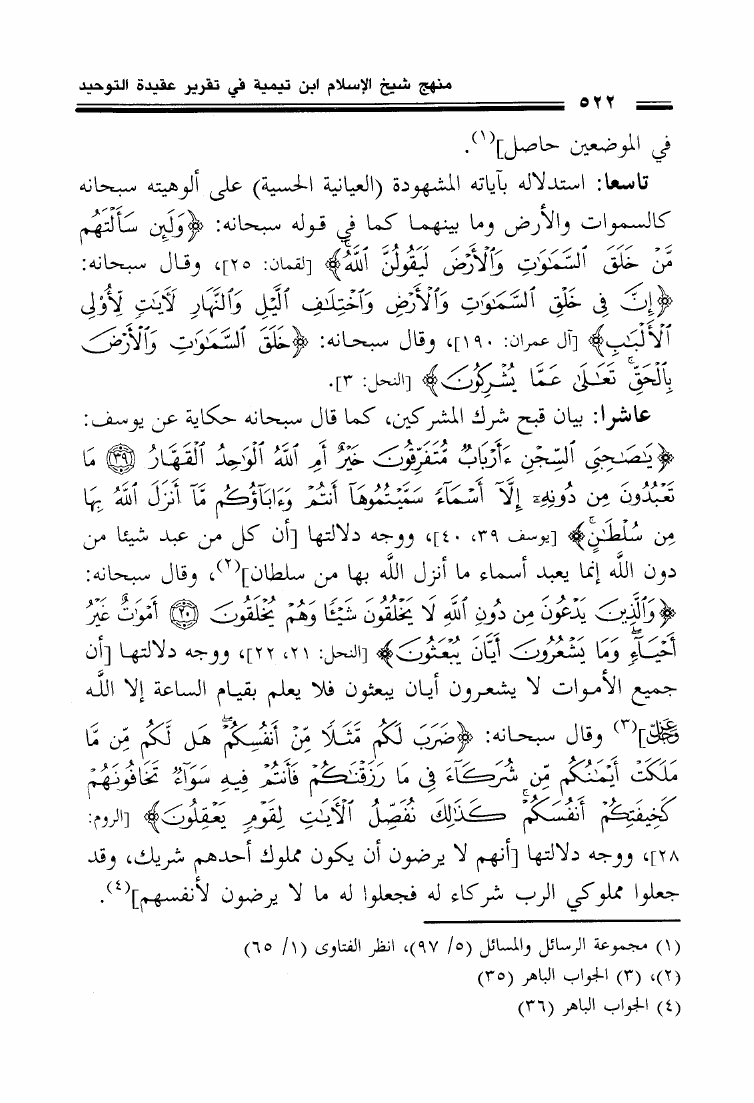 منهج شيخ الإسلام ابن تيمية في تقرير عقيدة التوحيد
٥٢٢
في الموضعين حاصل](١).
تاسعا: استدلاله بآياته المشهودة (العيانية الحسية) على ألوهيته سبحانه
كالسموات والأرض وما بينهما كما في قوله سبحانه: ﴿وَلَئِن سَأَلْتَهُم
مَّنْ خَلَقَ ٱلسَّمَٰوَٰتِ وَٱلْأَرْضَ لَيَقُولُنَّ ٱللَّهُ﴾ [لقمان: ٢٥]، وقال سبحانه:
﴿إِنَّ فِي خَلْقِ ٱلسَّمَٰوَٰتِ وَٱلْأَرْضِ وَٱخْتِلَٰفِ ٱلَّيْلِ وَٱلنَّهَارِ لَءَايَٰتٍ لِّأُو۟لِى
ٱلْأَلْبَٰبِ﴾ [آل عمران: ١٩٠]، وقال سبحانه: ﴿خَلَقَ ٱلسَّمَٰوَٰتِ وَٱلْأَرْضَ
بِٱلْحَقِّ ۚ تَعَٰلَىٰ عَمَّا يُشْرِكُونَ﴾ [النحل: ٣].
عاشرا: بيان قبح شرك المشركين، كما قال سبحانه حكاية عن يوسف:
﴿يَٰصَٰحِبَىِ ٱلسِّجْنِ ءَأَرْبَابٌ مُّتَفَرِّقُونَ خَيْرٌ أَمِ ٱللَّهُ ٱلْوَٰحِدُ ٱلْقَهَّارُ ﴿٣٩﴾ مَا
تَعْبُدُونَ مِن دُونِهِۦٓ إِلَّآ أَسْمَآءً سَمَّيْتُمُوهَآ أَنتُمْ وَءَابَآؤُكُم مَّآ أَنزَلَ ٱللَّهُ بِهَا
مِن سُلْطَٰنٍ ۚ﴾ [يوسف ٣٩، ٤٠]، ووجه دلالتها [أن كل من عبد شيئا من
دون الله إنما يعبد أسماء ما أنزل الله بها من سلطان](٢)، وقال سبحانه:
﴿وَٱلَّذِينَ يَدْعُونَ مِن دُونِ ٱللَّهِ لَا يَخْلُقُونَ شَيْـًٔا وَهُمْ يُخْلَقُونَ ﴿٢٠﴾ أَمْوَٰتٌ غَيْرُ
أَحْيَآءٍ ۖ وَمَا يَشْعُرُونَ أَيَّانَ يُبْعَثُونَ﴾ [النحل: ٢١، ٢٢]، ووجه دلالتها [أن
جميع الأموات لا يشعرون أيان يبعثون فلا يعلم بقيام الساعة إلا الله
عز وجل](٣) وقال سبحانه: ﴿ضَرَبَ لَكُم مَّثَلًا مِّنْ أَنفُسِكُمْ ۖ هَل لَّكُم مِّن مَّا
مَلَكَتْ أَيْمَٰنُكُم مِّن شُرَكَآءَ فِى مَا رَزَقْنَٰكُمْ فَأَنتُمْ فِيهِ سَوَآءٌ تَخَافُونَهُمْ
كَخِيفَتِكُمْ أَنفُسَكُمْ ۚ كَذَٰلِكَ نُفَصِّلُ ٱلْءَايَٰتِ لِقَوْمٍ يَعْقِلُونَ﴾ [الروم:
٢٨]، ووجه دلالتها [أنهم لا يرضون أن يكون مملوك أحدهم شريك، وقد
جعلوا مملوكي الرب شركاء له فجعلوا له ما لا يرضون لأنفسهم](٤).
(١) مجموعة الرسائل والمسائل (٥/ ٩٧)، انظر الفتاوى (١/ ٦٥)
(٢)، (٣) الجواب الباهر (٣٥)
(٤) الجواب الباهر (٣٦)